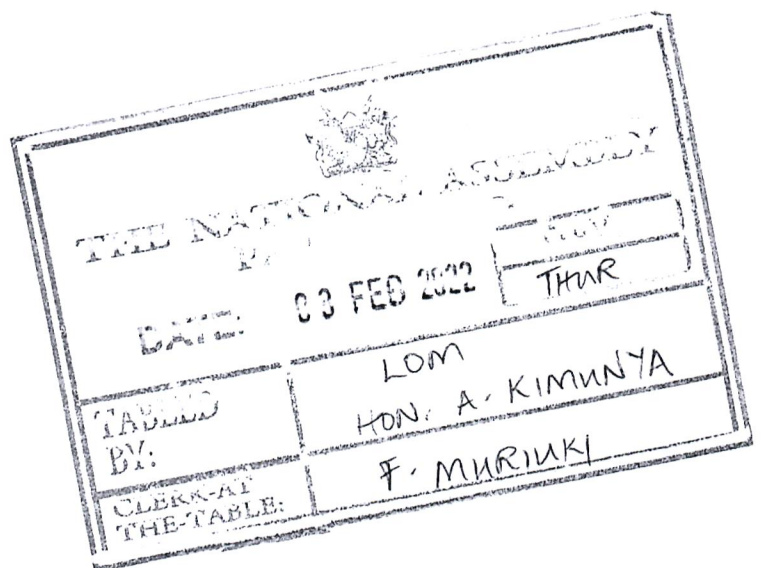 THE NATIONAL ASSEMBLY
DATE: 03 FEB 2022
DAY
THUR
TABLED BY:
LOM
HON. A. KIMUNYA
CLERK-AT THE-TABLE:
F. MURIUKI